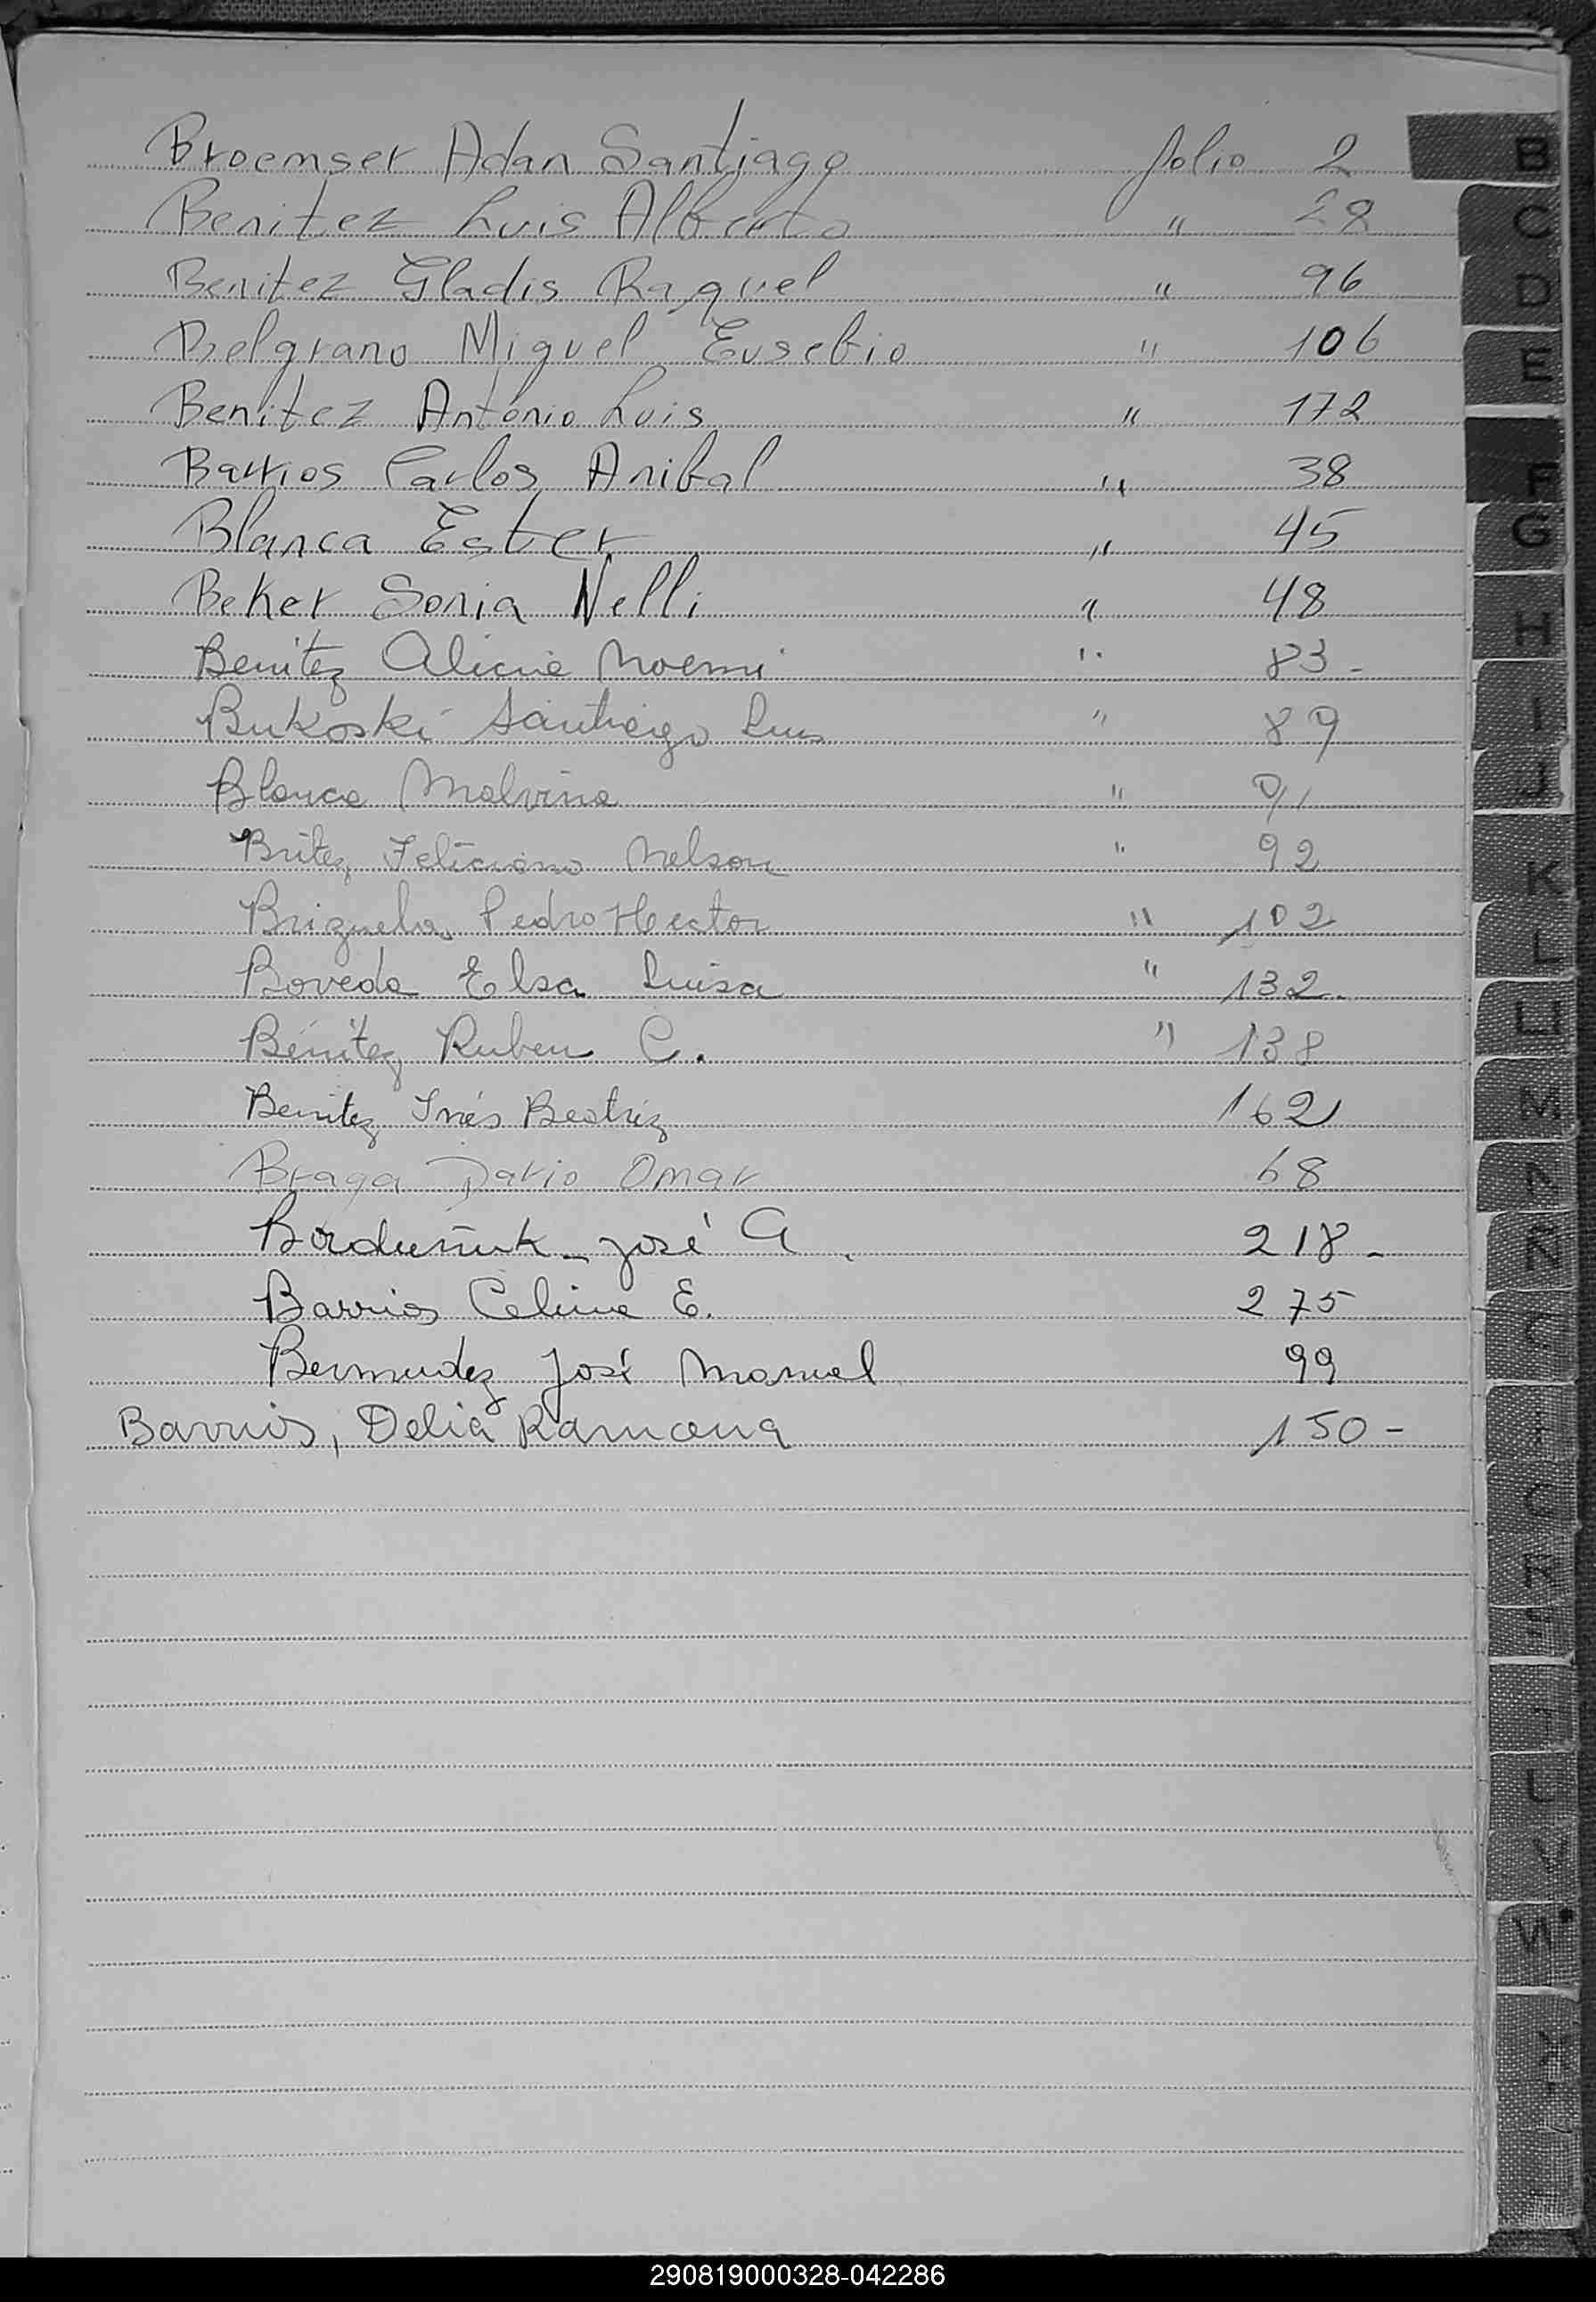 Broemser Adan Santiago folio 2
Benitez Luis Alberto " 28
Benitez Gladis Raquel " 96
Belgrano Miguel Eusebio " 106
Benitez Antonio Luis " 172
Barrios Carlos Anibal " 38
Blanca Ester " 45
Beker Sonia Nelli " 48
Benitez Alicia Noemi " 83-
Bukoski Santiago Luis " 89
Blanca Malvina " 91
Britez Feliciano Nelson " 92
Brizuela Pedro Hector " 102
Boveda Elsa Luisa " 132.
Benítez Ruben C. " 138
Benitez Inés Beatriz 162
Braga Dario Omar 68
José A. 218-
Barrios Celina E. 275
Bermudez José Manuel 99
Barrios, Delia Ramona 150-
B
C
D
E
F
G
H
I
J
K
L
LL
M
N
Ñ
V
W
290819000328-042286